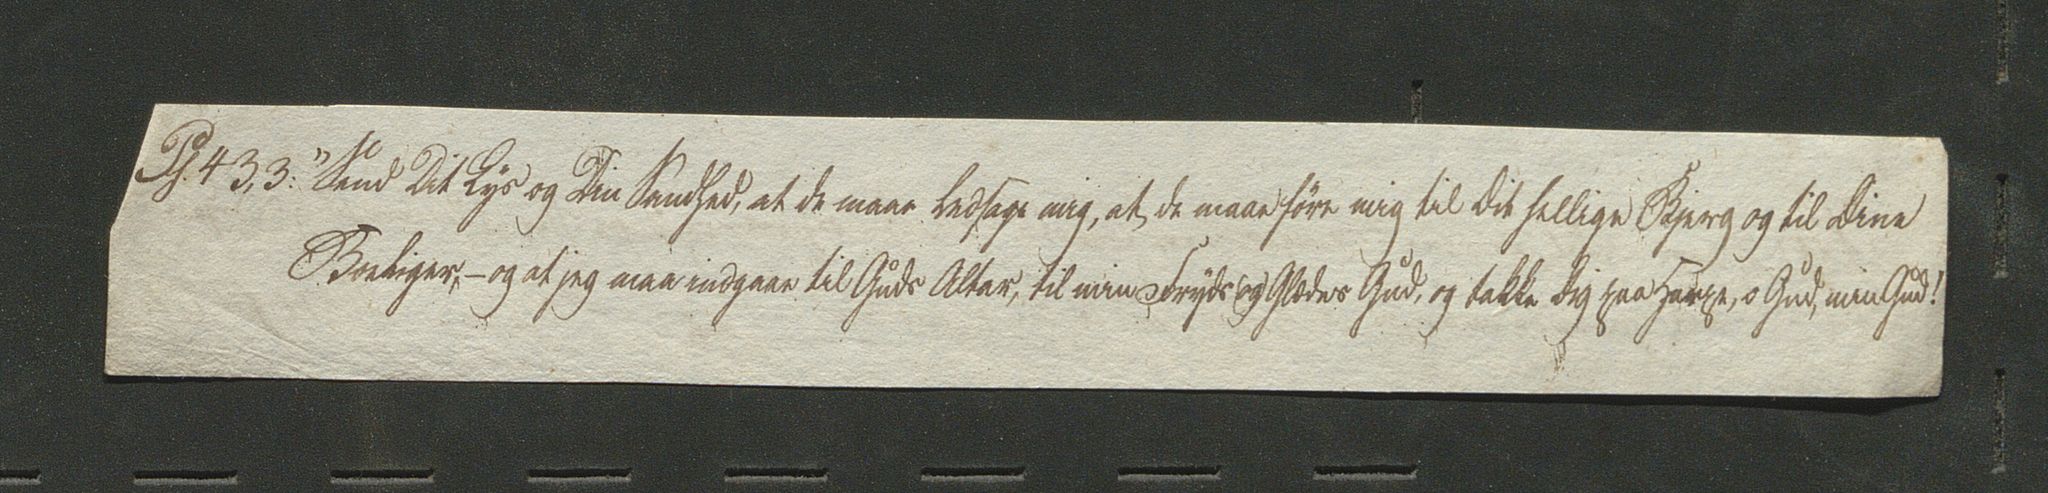 Ps. 43,3: "Send Dit Lys og Din Sandhed, at de maae ledsage mig, at de maae føre mig til Dit hellige Bjerg og til Dine
Boeliger, – og at jeg maa indgaae til Guds Altar, til min Fryds og Glædes Gud, og takke Dig paa Harpe, o Gud, min Gud!